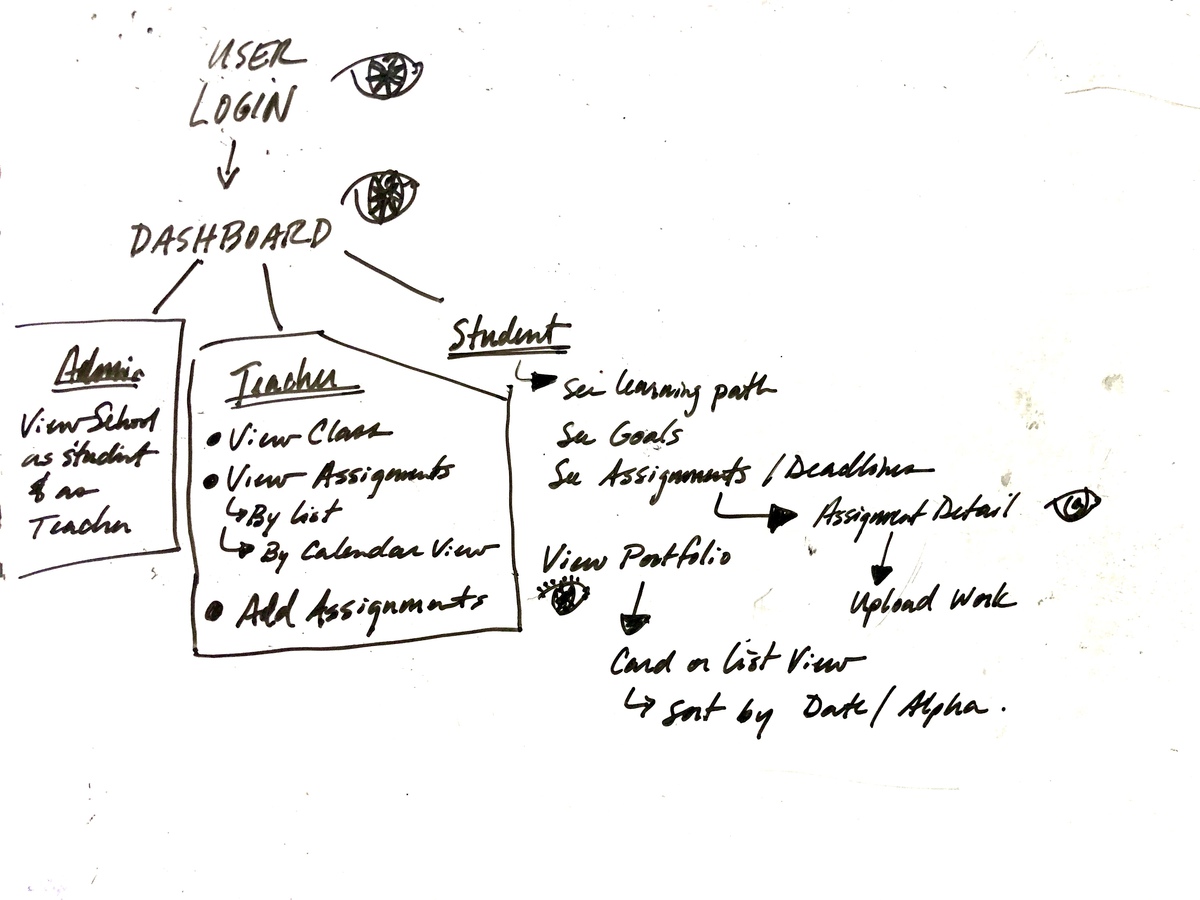 USER
LOGIN
DASHBOARD
Admin
View School
as student
& as
Teacher
Teacher
• View Class
• View Assignments
↳ By list
↳ By Calendar View
• Add Assignments
Student
See learning path
See Goals
See Assignments / Deadlines
Assignment Detail
Upload Work
View Portfolio
Card or List View
↳ Sort by Date / Alpha.